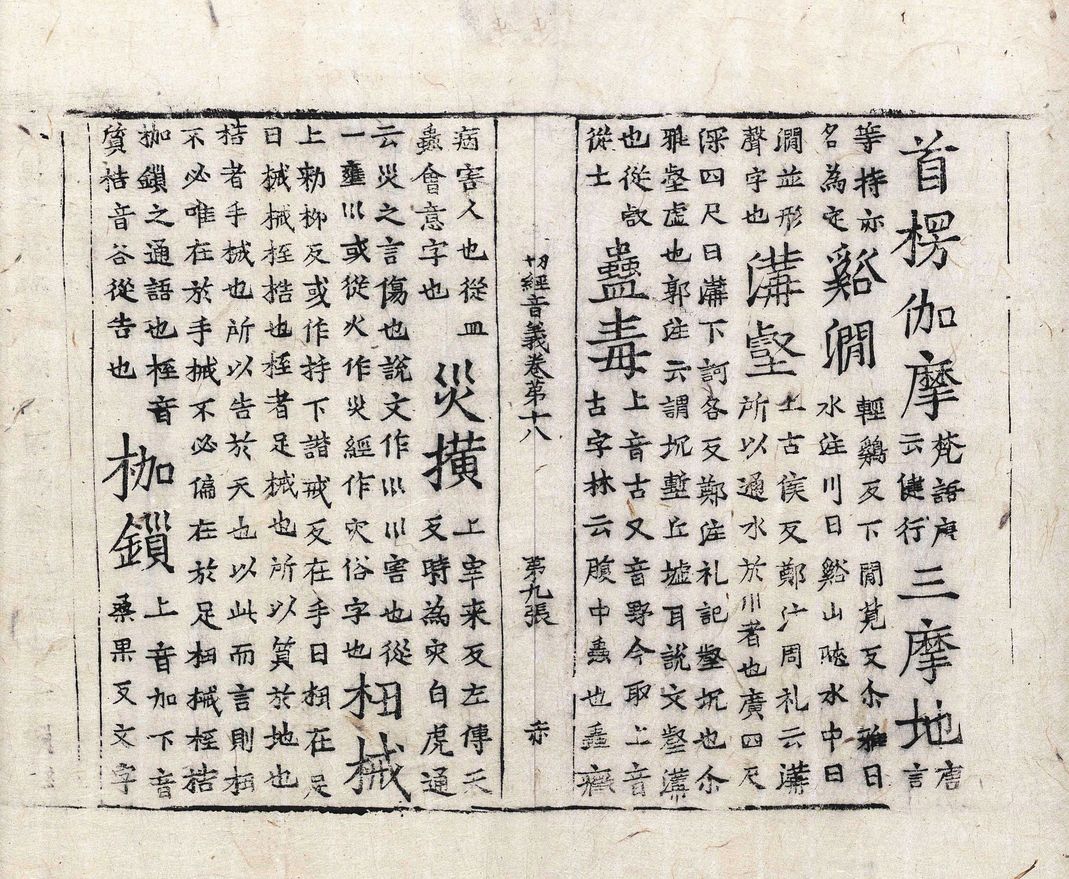 首楞伽摩
梵語唐
云健行
三摩地
唐
言
等持亦
名為定
谿澗
輕鷄反下閒莧反尒雅曰
水注川曰谿山陖水中曰
澗並形
聲字也
溝壑
上古侯反鄭注周礼云溝
所以通水於川者也廣四尺
深四尺曰溝下訶各反鄭注礼記壑坑也尒
雅壑虛也郭注云謂坑塹丘墟耳說文壑溝
也從㕡
從土
蠱毒
上音古又音野今取上音
古字林云腹中蟲也蠱齋
切經音義卷第十八 第九張 赤
病害人也從皿
蟲會意字也
災橫
上宰来反左傳天
反時為灾白虎通
云災之言傷也說文作巛巛害也從
一壅巛或從火作災經作灾俗字也
杻械
上勑柳反或作持下諧戒反在手曰杻在足
曰械械桎捁也桎者足械也所以質於地也
梏者手械也所以告於天也以此而言則杻
不必唯在於手械不必偏在於足杻械桎捁
枷鎖之通語也桎音
質梏音谷從告也
枷鎖
上音加下音
桒果反文字